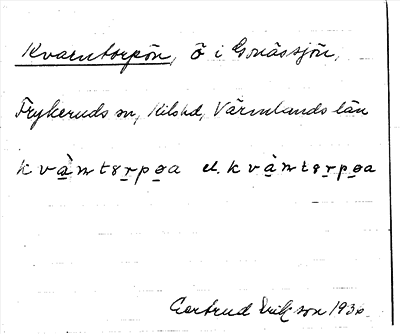 Kvarntorpön, ö i Gonässjön,
Frykeruds sn, Kils hd, Värmlands län
k v à̲ m t ɞ r̲ p ə̲ a el. k v à̲ m t ɞ r̲ p ə̲ a
Gertrud Eriksson 1936.